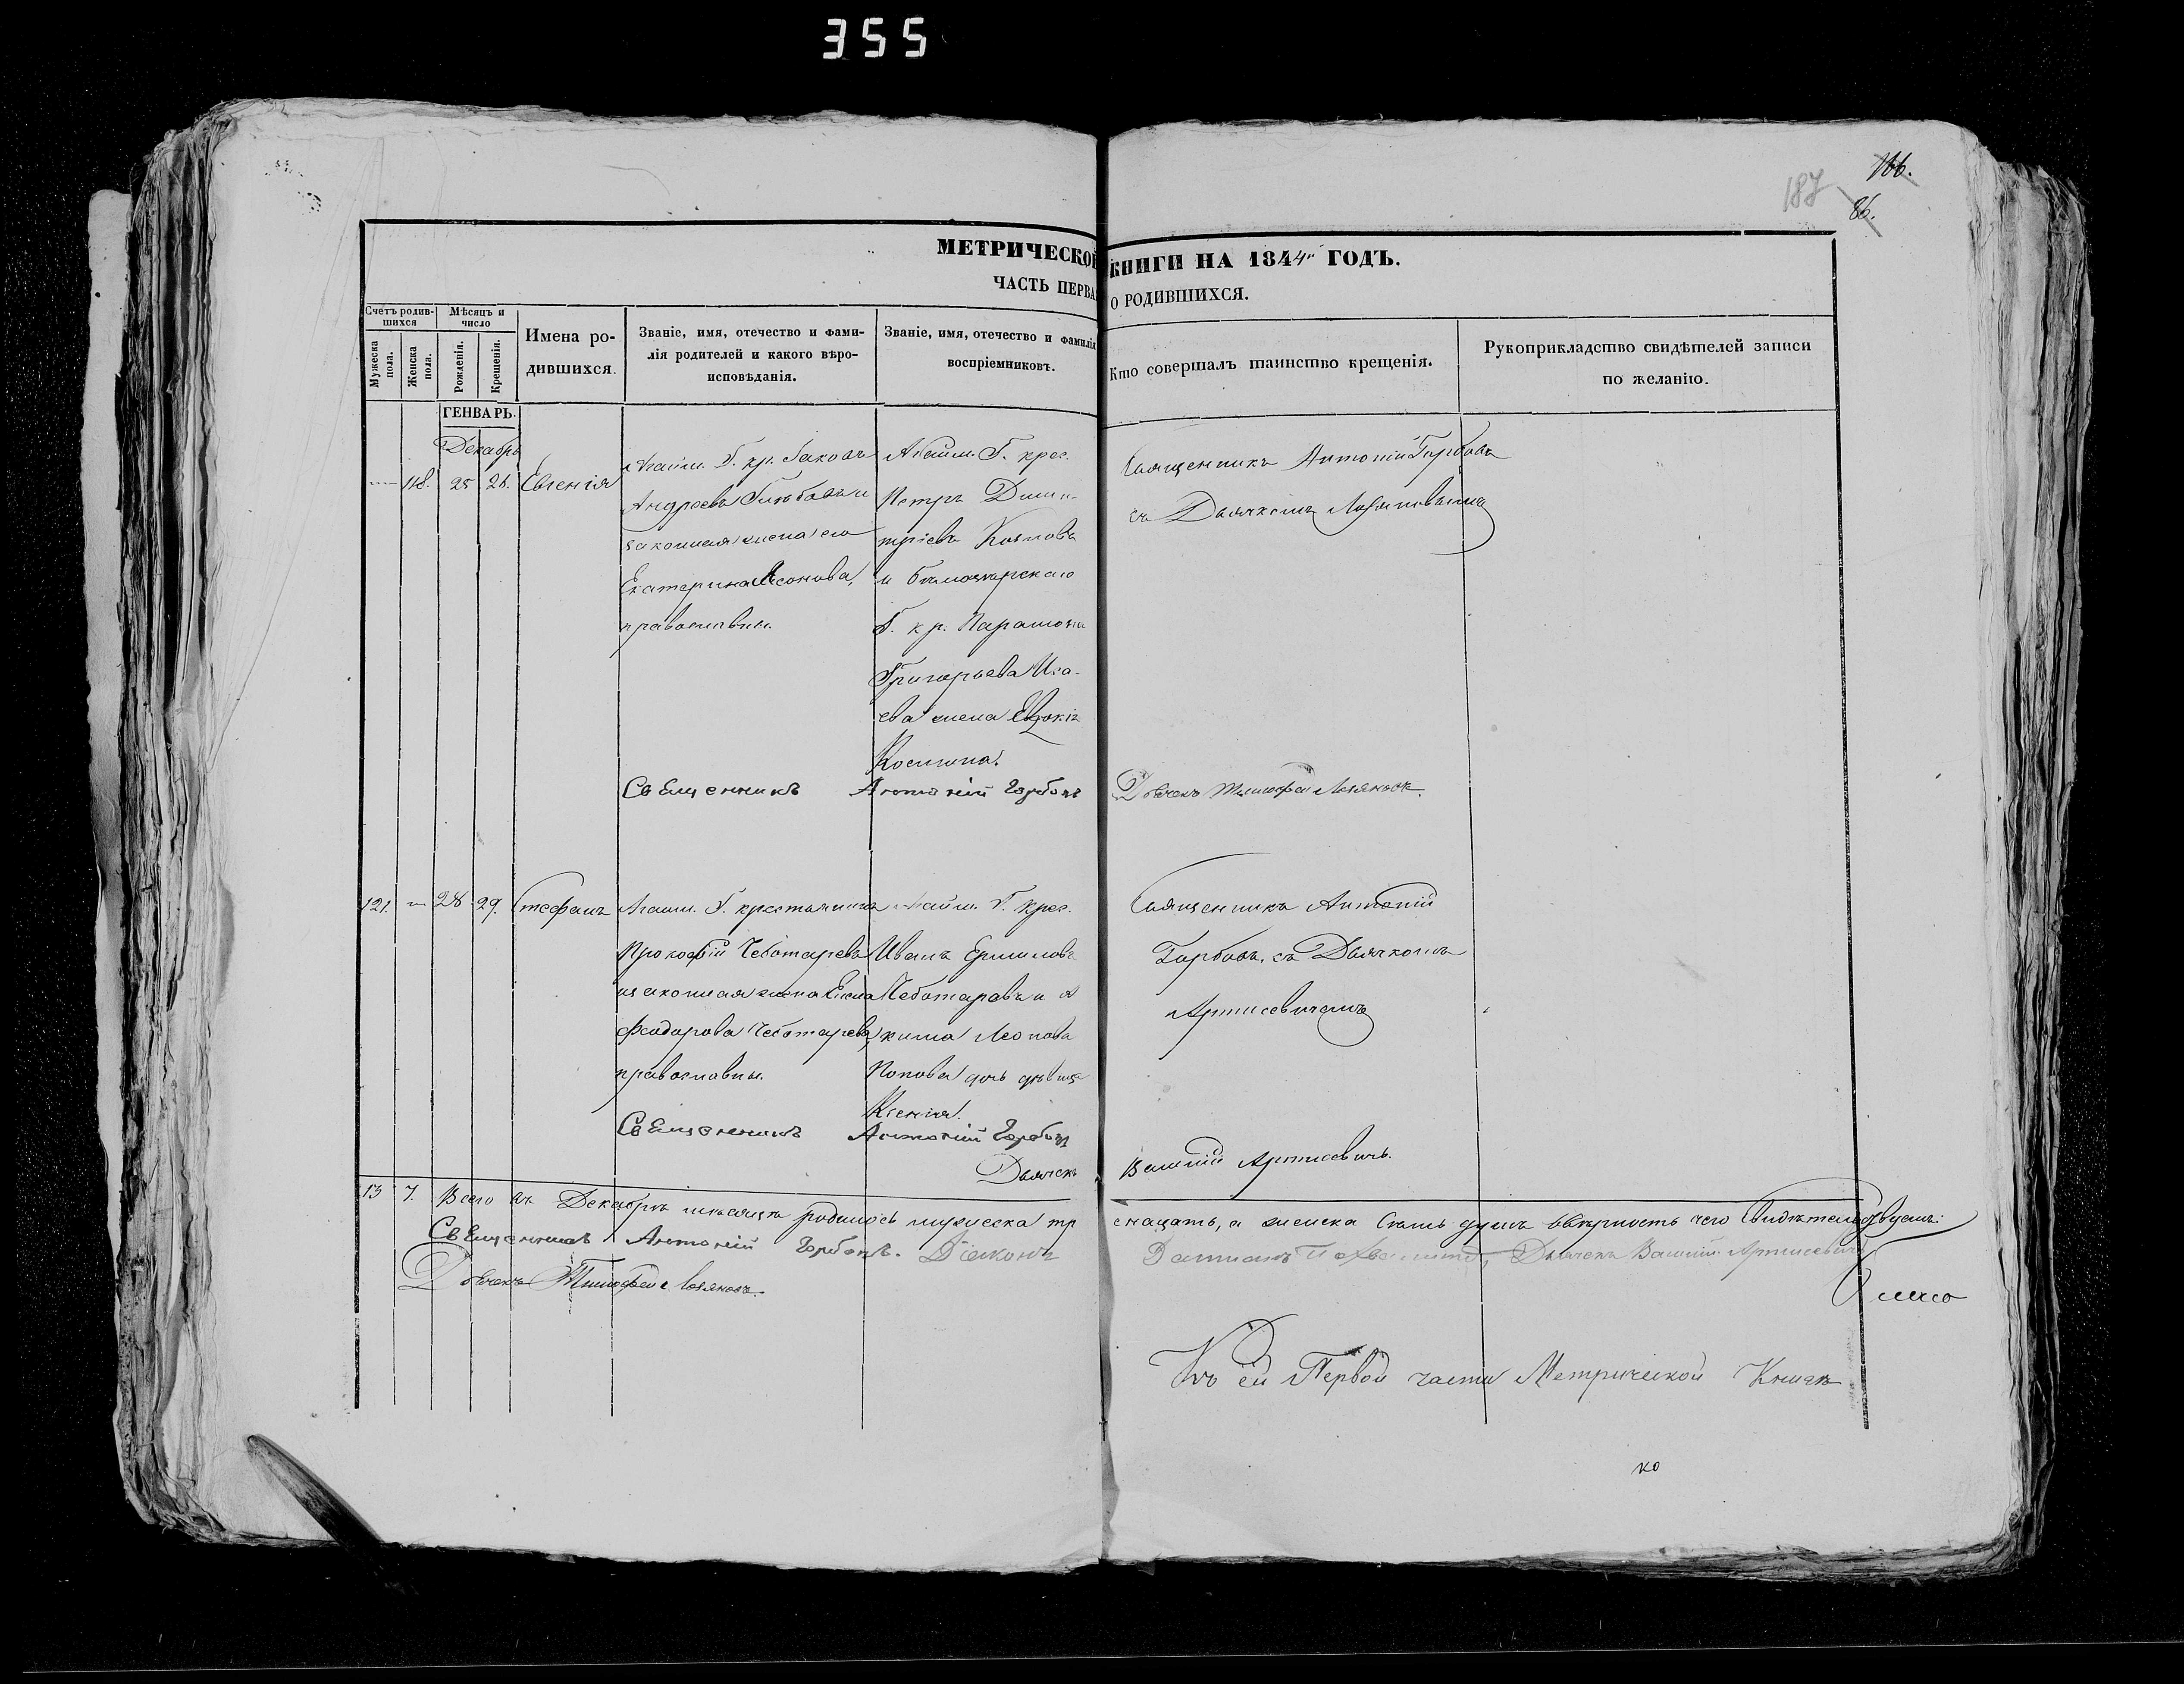 355
187
166.
86.
МЕТРИЧЕСКОЙ КНИГИ НА 1844 ГОДЪ.
ЧАСТЬ ПЕРВА О РОДИВШИХСЯ.
Счетъ родив-
шихся
Мужеска пола.
Женска пола.
Мѣсяцъ и
число
Рожденія.
Крещенія.
Имена ро-
дившихся.
Званіе, имя, отечество и фами-
лія родителей и какого вѣро-
исповѣданія.
Званіе, имя, отечество и фамилія
воспріемниковъ.
Кто совершалъ таинство крещенія.
Рукоприкладство свидѣтелей записи
по желанію.
ГЕНВАРЬ.
Декабрь
118. 25 28. Евгенія
Г. кр. Іаковъ
Андреевъ Глѣбовъ и
законная жена его
Екатерина Леонова,
православные.
Г. крес.
Петръ Дими-
тріевъ Козловъ
и
Г. кр. Парамона
Григорьева Иса-
ева жена Евдокія
Космина.
Священникъ Антоній Горбовъ
съ Дьячкомъ
Священникъ Антоній Горбовъ
Дьячекъ Тимофей
121. 28 29. Стефанъ
Г. крестьянинъ
Прокофій Чеботаревъ
и законная жена Елена
Феодорова Чеботарева,
православны.
Г. крес.
Иванъ Ермиловъ
Чеботаревъ и А
кима Леонова
Попова дочь дѣвица
Ксенія.
Священникъ Антоній
Горбовъ, съ Дьячкомъ
Артисевичемъ
Священникъ Антоній Горбовъ
Дьячекъ Василій Артисевичъ.
13 7. Всего въ Декабрѣ мѣсяцѣ родилось мужеска три
снацать, а женска семь душъ вѣрность чего свидѣтельствуемъ:
Священникъ Антоній Горбовъ. Діаконъ
Дьячекъ Василій Артисевичъ
Дьячекъ Тимофей
Къ сей Первой части Метрической Книги
ко